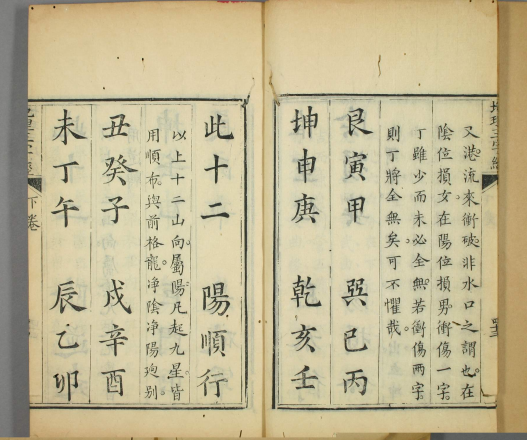 又港流來衝破非水口之謂也在
陰位損女在陽位損男衝傷一字
丁雖少而未必全無若衝傷兩字
則丁將全無矣可不懼哉
艮寅甲 巽巳丙
坤申庚 乾亥壬
此十二 陽順行
以上十二山向屬陽凡起九星皆
用順布與前格龍淨陰淨陽迥别
丑癸子 戌辛酉
未丁午 辰乙卯
下卷